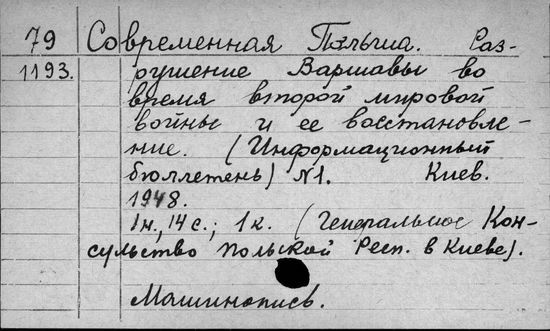 79 Современная Польша. Раз-
1193. рушение Варшавы во
время второй мировой
войны и ее восстановле-
ние. (Информационный
бюллетень) N1. Киев.
1948.
1н., 14 с.; 1 к. (Генеральное Кон-
сульство Польской Респ. в Киеве).
Машинопись.